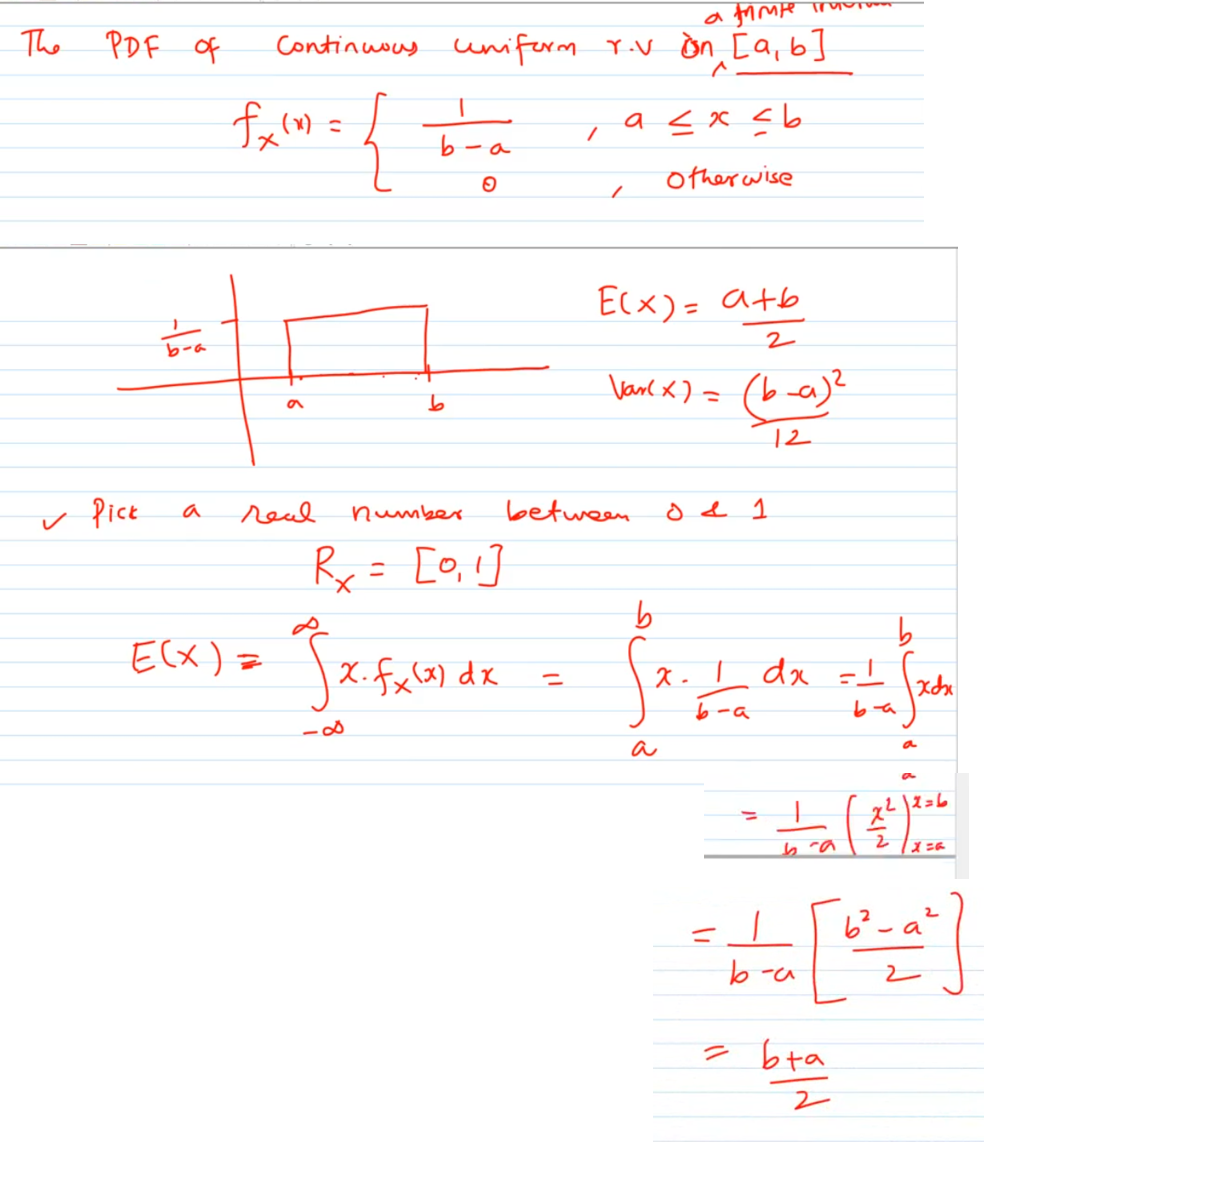 a finite
The PDF of continuous uniform r.v on [a, b]
f_X(x) = { 1/(b-a) , a ≤ x ≤ b
0 , otherwise
1/(b-a)
a b
E(X) = (a+b)/2
Var(X) = (b-a)²/12
✓ Pick a real number between 0 & 1
R_X = [0, 1]
E(X) = ∫_{-∞}^{∞} x. f_X(x) dx = ∫_a^b x. 1/(b-a) dx = 1/(b-a) ∫_a^b x dx
a
= 1/(b-a) (x²/2)_{x=a}^{x=b}
= 1/(b-a) [(b²-a²)/2]
= (b+a)/2